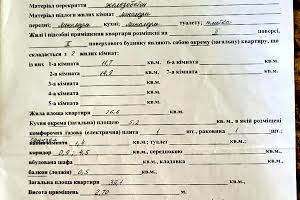 Матеріал перекриття железобетон
Матеріал підлоги жилих кімнат линолеум
передні линолеум кухні линолеум туалету плитка
Жилі і підсобні приміщення квартири розміщені на II поверсі,
II поверхового будинку являють собою окрему (загальну) квартиру, що
складається з 2 жилих кімнат:
із них 1-а кімната 11,7 кв.м. 6-а кімната кв.м.
2-а кімната 14,9 кв.м. 7-а кімната кв.м.
3-а кімната кв.м. 8-а кімната кв.м.
4-а кімната кв.м.
5-а кімната кв.м.
Жила площа квартири 26,6 кв.м.
Кухня окрема (загальна) площею 5,2 кв.м., в якій розміщені
комфорочна газова (електрична) плита 1 шт., раковина 1 шт.
ванна кімната кв.м.; туалет кв.м.
коридор кв.м., передпокою кв.м.
вбудована шафа кв.м., кладовка кв.м.
балкон (лоджія) 0,5 кв.м.
Загальна площа квартири 39,1 кв.м.
Висота приміщень 2,70 м.